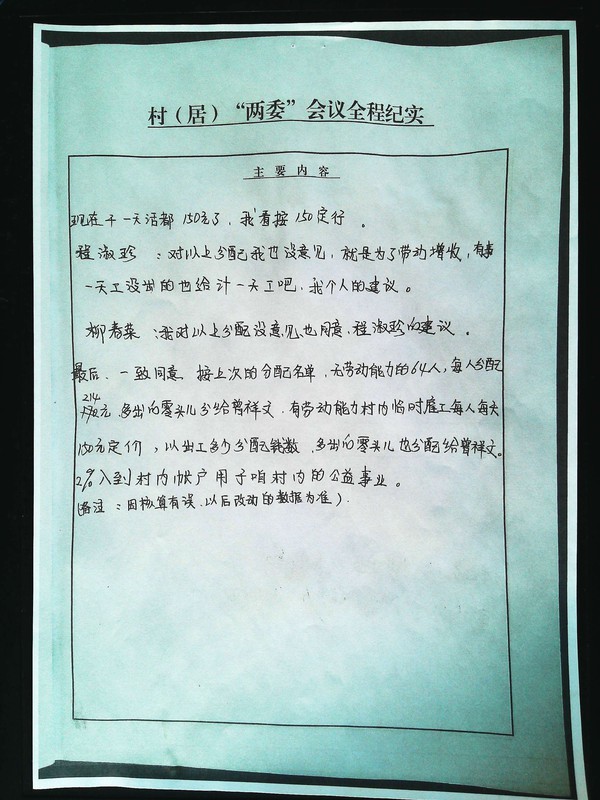 村（居）“两委”会议全程纪实
主要内容
现在干一天活都150元了，我看按150定行。
程淑珍：对以上分配我也没意见，就是为了带动增收，有事
一天工没出的也给计一天工吧，我个人的建议。
柳春荣：我对以上分配没意见也同意，程淑珍的建议。
最后，一致同意，按上次的分配名单，无劳动能力的64人，每人分配
214
元，多出的零头儿分给曾祥文，有劳动能力村内临时雇工每人每天
150元定价，以出工多少分配钱数，多出的零头儿也分配给曾祥文。
2%入到村内帐户用于咱村内的公益事业。
（备注：因核算有误，以后改动的数据为准）